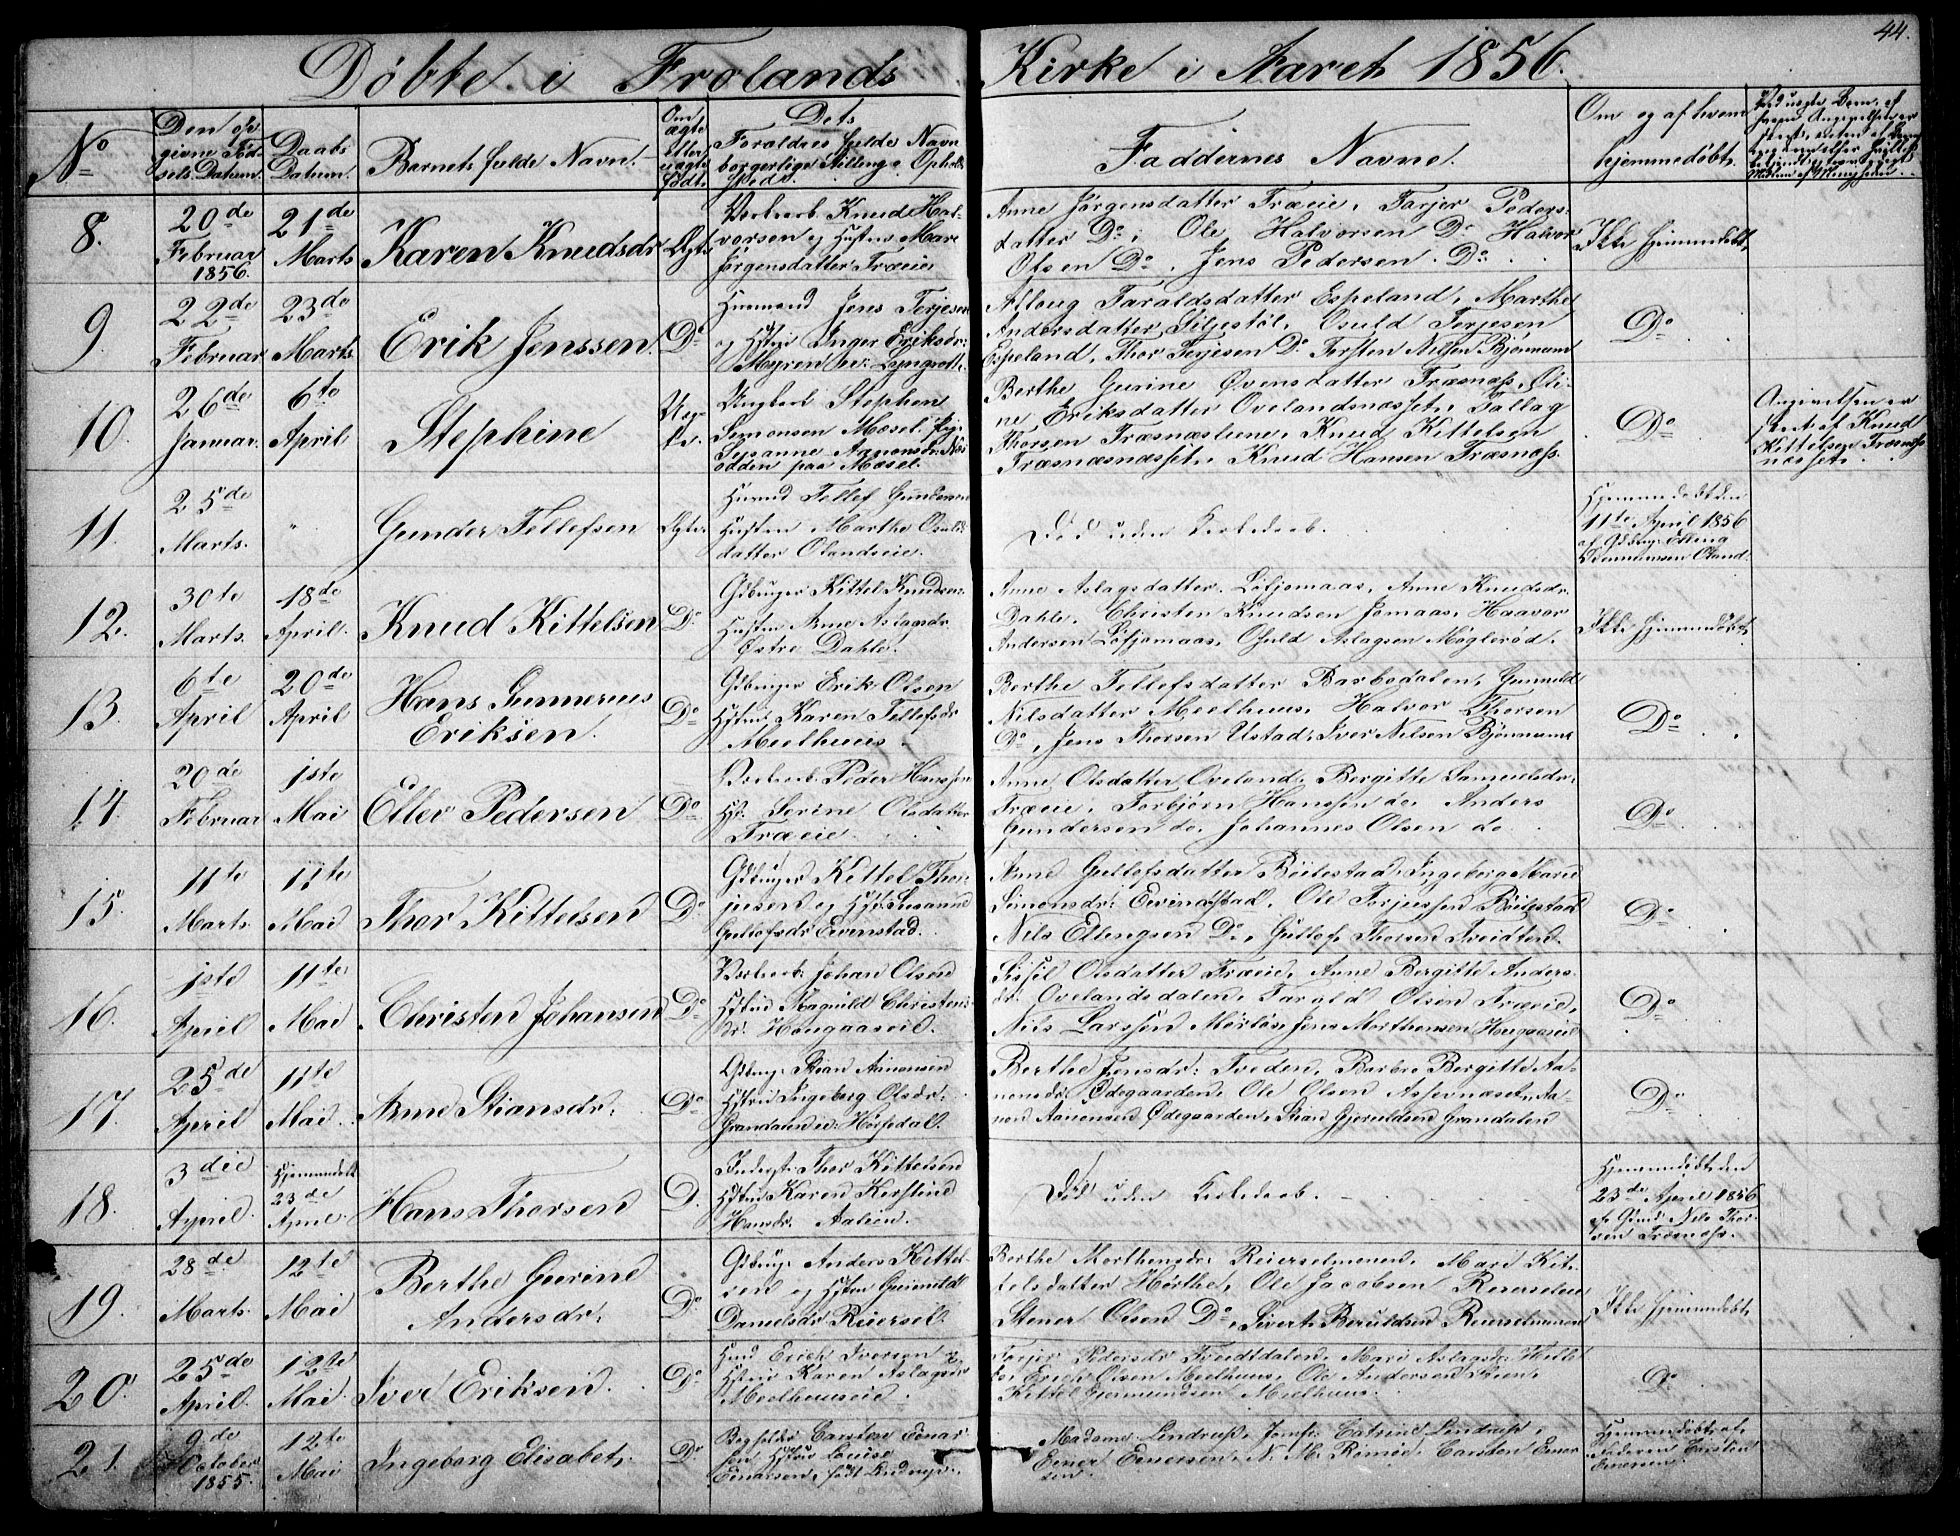 44.
Döbte i Frolands Kirke i Aaret 1856.
No
Den op
givne Föd
sels Datum.
Daabs
Datum.
Barnets fulde Navn.
Om
ægte
eller
uægte
födt.
Dets
Forældres fulde Navn
borgerlige Stilling o. Opholds
sted.
Faddernes Navne.
Om og af hvem
hjemmedöbt.
8.
20de
Februar
1856.
21de
Marts
Karen Knudsdr
Ægte
Knud Hal-
vorsen og Hustru Mari
Jörgensdatter Træeie
Anne Jörgensdatter Træeie, Tarjer Peders-
datter Do, Ole Halvorsen Do Halvor
Olsen Do, Jens Pedersen Do
Ikke hjemmedöbt
9.
22de
Februar
23de
Marts
Erik Jenssen.
Do
Huusmand Jens Terjesen
og Hstru Inger Eriksdr:
Myren
Aslaug Taraldsdatter Espeland, Marthe
Andersdatter Siljestöl, Osuld Terjesen
Espeland, Thor Terjesen Do Torsten Nilsen Bjönnum
Do
10.
26de
Januar.
6te
April
Stephine
Uæg-
te.
Ungkarl Stephen
Simonsen Mæsel, Pige
Susanne Aanonsdr: Næs
odden paa Mæsel.
Berthe Gurine Övensdatter Træsnæss, Oli-
ne Eriksdatter Ovelandsnæsset, Tallag
Thorsen Træsnæsliene, Knud Kittelsen
Træsnæsnæsset, Knud Hansen Træsnæss.
Do
Angivelsen er
skeet af Knud
Kittelsen Træsnæss
næsset.
11.
25de
Marts.
"
Gunder Tellefsen
Ægte.
Husmd Tellef Gundersen
Hustru Marthe Osulds
datter Olandseie.
Död uden Kirkedaab.
Hjemmedöbt den
11te April 1856
af Gdbrug: Elling
Oland
12.
30te
Marts.
18de
April.
Knud Kittelsen
Do
Gdbruger Kittel Knudsen
Hustru Anne Aslagsdr
Östre Dahle.
Anne Aslagsdatter Löfsjomaas, Anne Knudsdr
Dahle, Christen Knudsen Jomaas, Haavor
Andersen Löfjomaas, Osuld Aslagsen Mögleröd.
Ikke hjemmedöbt
13.
6te
April
20de
April
Hans Gunnerius
Eriksen.
Do
Gdbruger Erik Olsen
Hstru Karen Tellefsdr
Mielhuus.
Berthe Tellefsdatter Barbodalen, Gunnild
Nilsdatter Mielhuus, Halvor Thorsen
Do, Jens Thorsen Ustad, Iver Nilsen Bjönnum
Do
14.
20de
Februar
1ste
Mai
Eller Pedersen
Do
Peder Hanssen
Hst. Serine Olsdatter
Træeie
Anne Olsdatter Oveland, Bergitte Samuelsdr.
Træeie, Torbjörn Hanssen do Anders
Gundersen do, Johannes Olsen do
Do
15.
11te
Marts
11te
Mai
Thor Kittelsen
Do
Gdbruger Kittel Thor-
jusen og Hst. Susanne
Gullofsdr Eivenstad.
Anne Gullofsdatter Böilestad, Ingeborg Marie
Simonsdr: Eivindstad, Ole Torjussen Böilestad
Nils Ellengsen Do, Gullof Thorsen Tveidten.
Do
16.
1ste
April
11te
Mai
Christen Johansen
Do
Johan Olsen
Hstru Ragnild Christens
dr. Hougaaseie.
Sissil Olsdatter Træeie, Anne Bergitte Anders-
dr: Ovelandsdalen, Tarald Olsen Træeie,
Nils Larssen Mörlös, Jens Morthensen Hougaaseie
Do
17.
25de
April
11te
Mai
Anne Stiansdr:
Do
Gdbrug: Stian Aanonsen
Hstru Ingeborg Olsdr:
Grandalen v: Hörsedal.
Berthe Jensdr: Tveden, Barbro Bergitte Aa-
nonsdr: Ödegaarden, Ole Olsen Assevnæset, Aa-
non Aanonsen Ödegaarden, Stian Gjeruldsen Grandalen
Do
18.
3die
April
Hjemmedöbt
23de
April.
Hans Thorsen
D.
Inderst: Thor Kittelsen
Hstru Karen Kirstine
Hansdr. Aalien.
Död uden Kirkedaab.
Hjemmedöbt den
23de April 1856
af Gmd: Nils Thor-
sen Træsnæss.
19.
28de
Marts
12te
Mai
Berthe Gurine
Andersdr:
Do
Gdbrug: Anders Kittel-
sen og Hstru Gunnild
Danielsdr Reiersel.
Berthe Morthensdr: Reierselmoen, Mari Kit-
telsdatter Hörthe, Ole Jacobsen Reierseleie
Stener Olsen Do, Sivert Beruldsen Reierselmoen
Ikke hjemmedöbt
20.
25de
April.
12te
Mai.
Iver Eriksen.
Do
Hmd Erich Iversen og
Hstru Karen Aslagsdr
Mielhuuseie.
Torjer Pedersdr Tveidtdalen, Mari Aslagsdr:
Erich Olsen Mielhuus, Ole Andersen
Kittel Gjermundsen Mielhuus.
Do
21.
9de
October
1855.
12te
Mai
Ingeborg Elisabet.
Do
Carsten Einar
sen, Hstru Louise
Einarsen, födt Lindrup.
Madame Lindrup, Jomf: Catrine Lindrup,
Einer Einersen, N. M. Carsten Einer
sen.
Hjemmedöbt af
Faderen Carsten
Einersen.